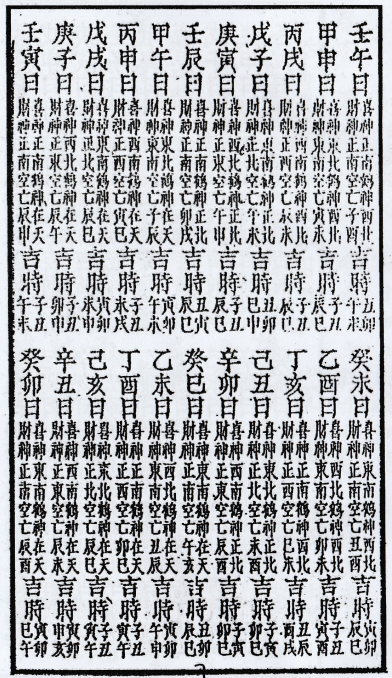 壬午日
喜神正南鶴神西北
財神正南空亡子酉
吉時
子丑
午卯
甲申日
喜神東北鶴神西北
財神東南空亡寅未
吉時
子丑
辰巳
丙戌日
喜神西南鶴神西北
財神正西空亡辰未
吉時
子丑
辰巳
戊子日
喜神東南鶴神正北
財神正北空亡午未
吉時
丑卯
巳申
庚寅日
喜神西北鶴神正北
財神正東空亡午未
吉時
子丑
辰巳
壬辰日
喜神正南鶴神正北
財神正南空亡午戌
吉時
丑寅
辰巳
甲午日
喜神東北鶴神在天
財神東南空亡子辰
吉時
寅卯
午申
丙申日
喜神西南鶴神在天
財神正西空亡寅巳
吉時
子丑
未戌
戊戌日
喜神東南鶴神在天
財神正北空亡辰巳
吉時
寅卯
未申
庚子日
喜神西北鶴神在天
財神正東空亡辰午
吉時
子丑
卯申
壬寅日
喜神正南鶴神在天
財神正南空亡辰申
吉時
子丑
午未
癸未日
喜神東南鶴神西北
財神正南空亡申酉
吉時
寅卯
巳午
乙酉日
喜神西北鶴神西北
財神東南空亡卯未
吉時
子丑
寅酉
丁亥日
喜神正南鶴神西北
財神正西空亡巳未
吉時
丑辰
酉戌
己丑日
喜神東北鶴神正北
財神正北空亡未酉
吉時
寅卯
巳
辛卯日
喜神西南鶴神正北
財神正東空亡午未
吉時
子寅
卯巳
癸巳日
喜神東南鶴神正北
財神正南空亡午亥
吉時
丑卯
辰巳
乙未日
喜神西北鶴神在天
財神東南空亡丑辰
吉時
寅卯
午申
丁酉日
喜神正南鶴神在天
財神正西空亡卯巳
吉時
子丑
寅午
己亥日
喜神東北鶴神在天
財神正北空亡辰巳
吉時
子丑
寅午
辛丑日
喜神西南鶴神在天
財神正東空亡辰未
吉時
寅卯
申亥
癸卯日
喜神東南鶴神在天
財神正南空亡辰酉
吉時
寅卯
巳午